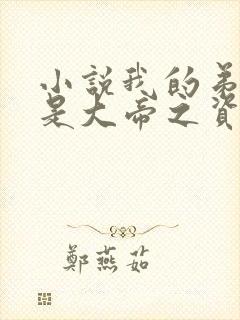 小説我的弟
是大帝之資
鄭燕茹